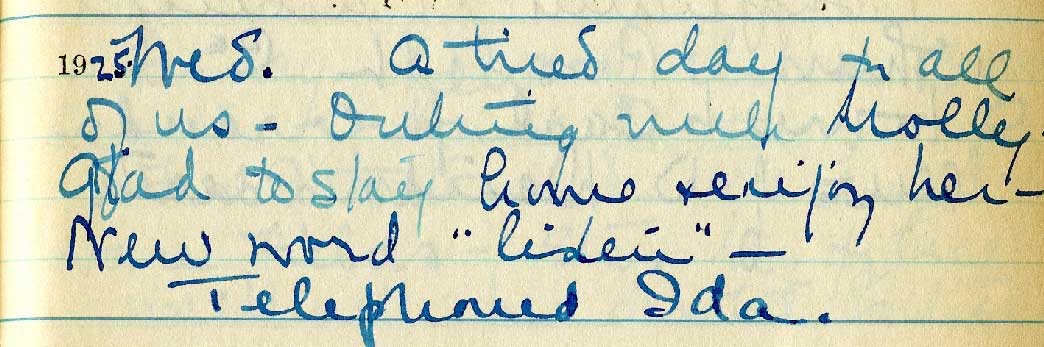 1925 Wed. A tired day for all
of us - Outing with Molly.
Glad to stay home & enjoy her -
New word "listen" -
Telephoned Ida.